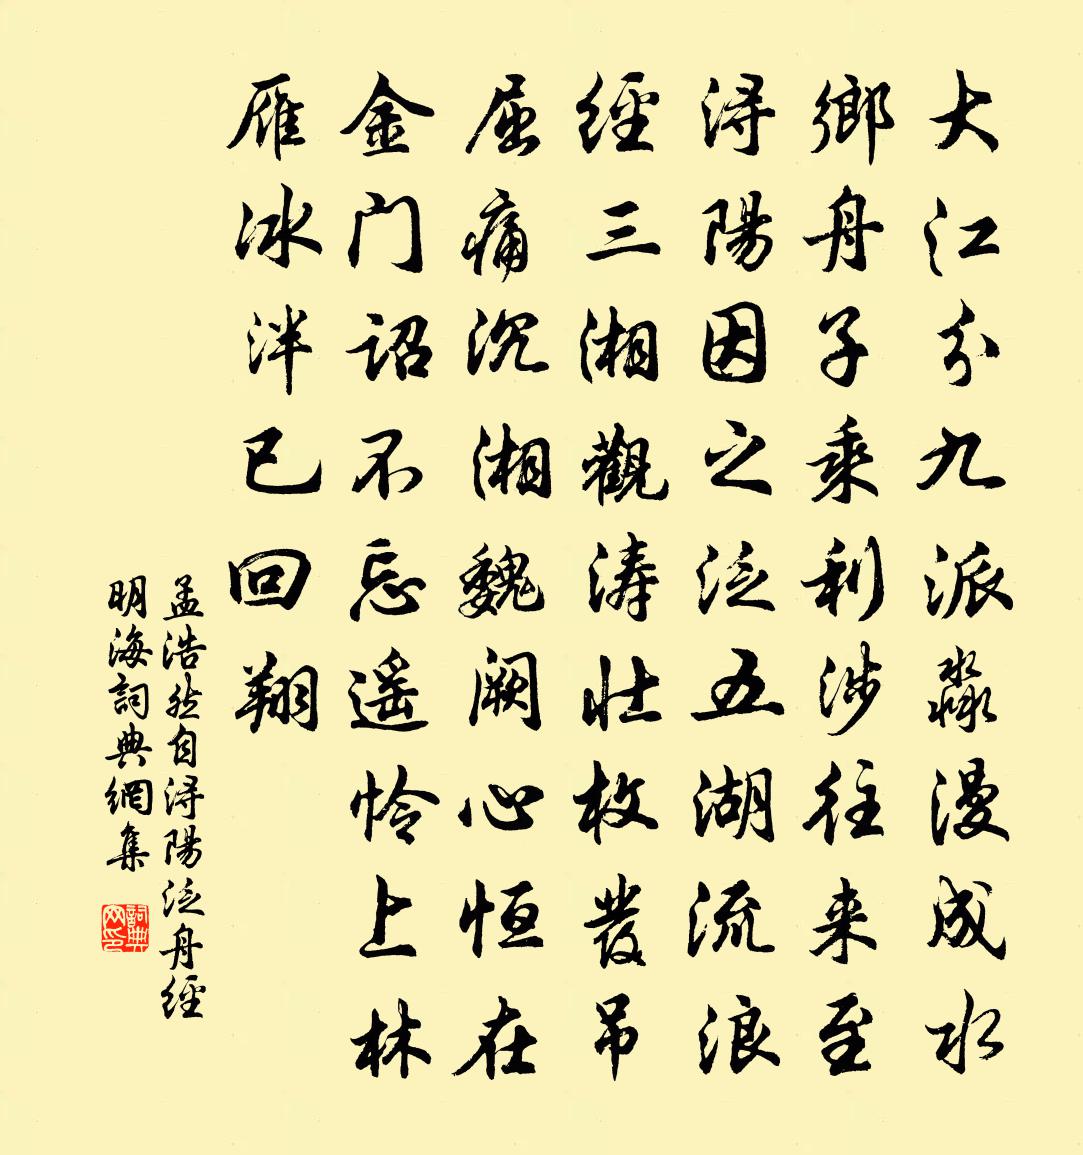 大江分九派淼漫成水
鄉舟子乘利涉往来至
浔陽因之泛五湖流浪
經三湘觀涛壮枚發吊
屈痛沉湘魏阙心恒在
金门詔不忘遥怜上林
雁冰泮已回翔
孟浩然自浔陽泛舟經
明海詞典網集
詞典
网印